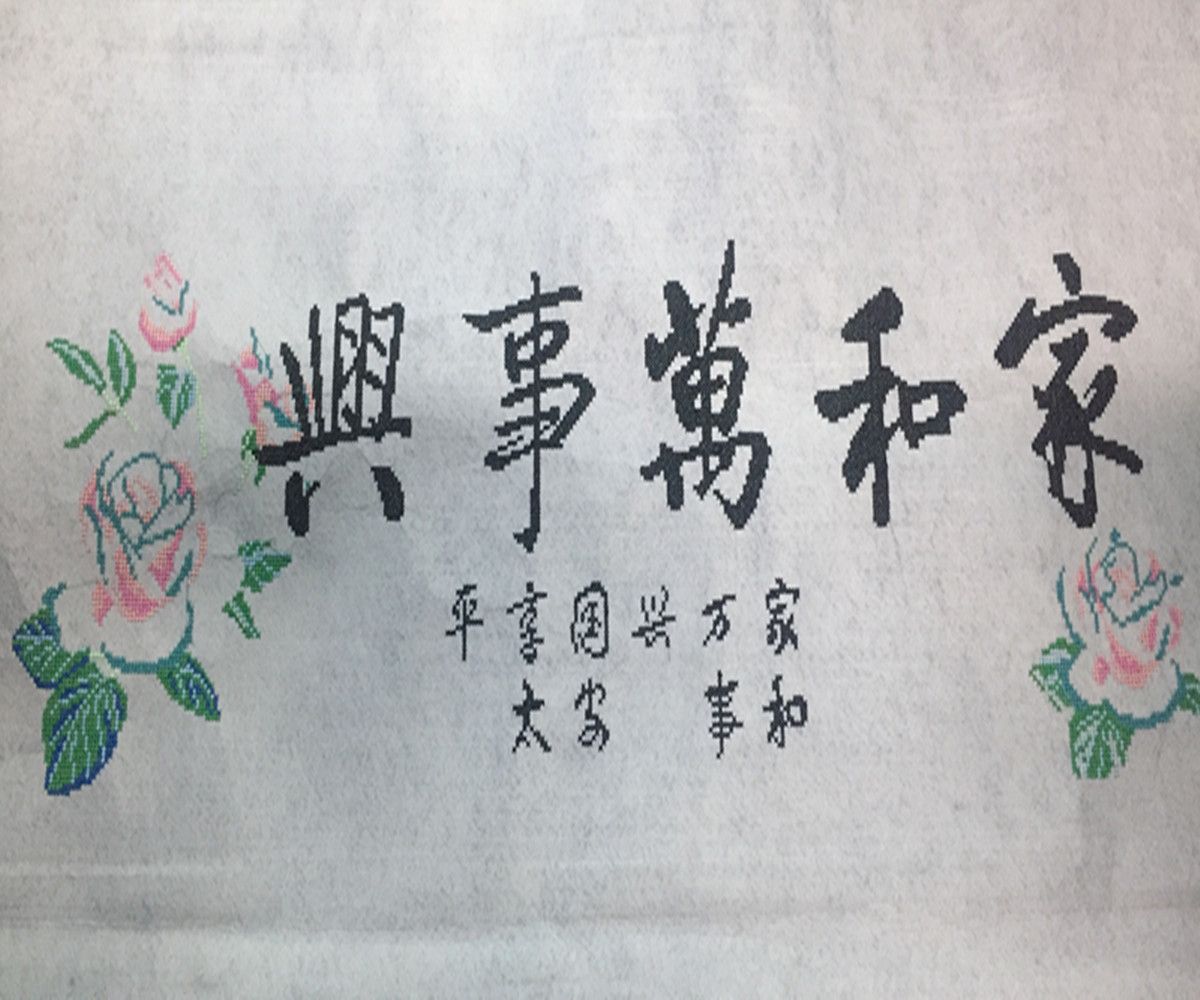 家和萬事興
家和万事兴国安享太平